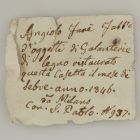 Angiolo Fasè Fabb.e
d'oggetti di Galanterie
di legno ristaurato
questa Casetta il mese di
Febre. anno. 1846.
da Milano
Cor: S. Pablo. N. 937.